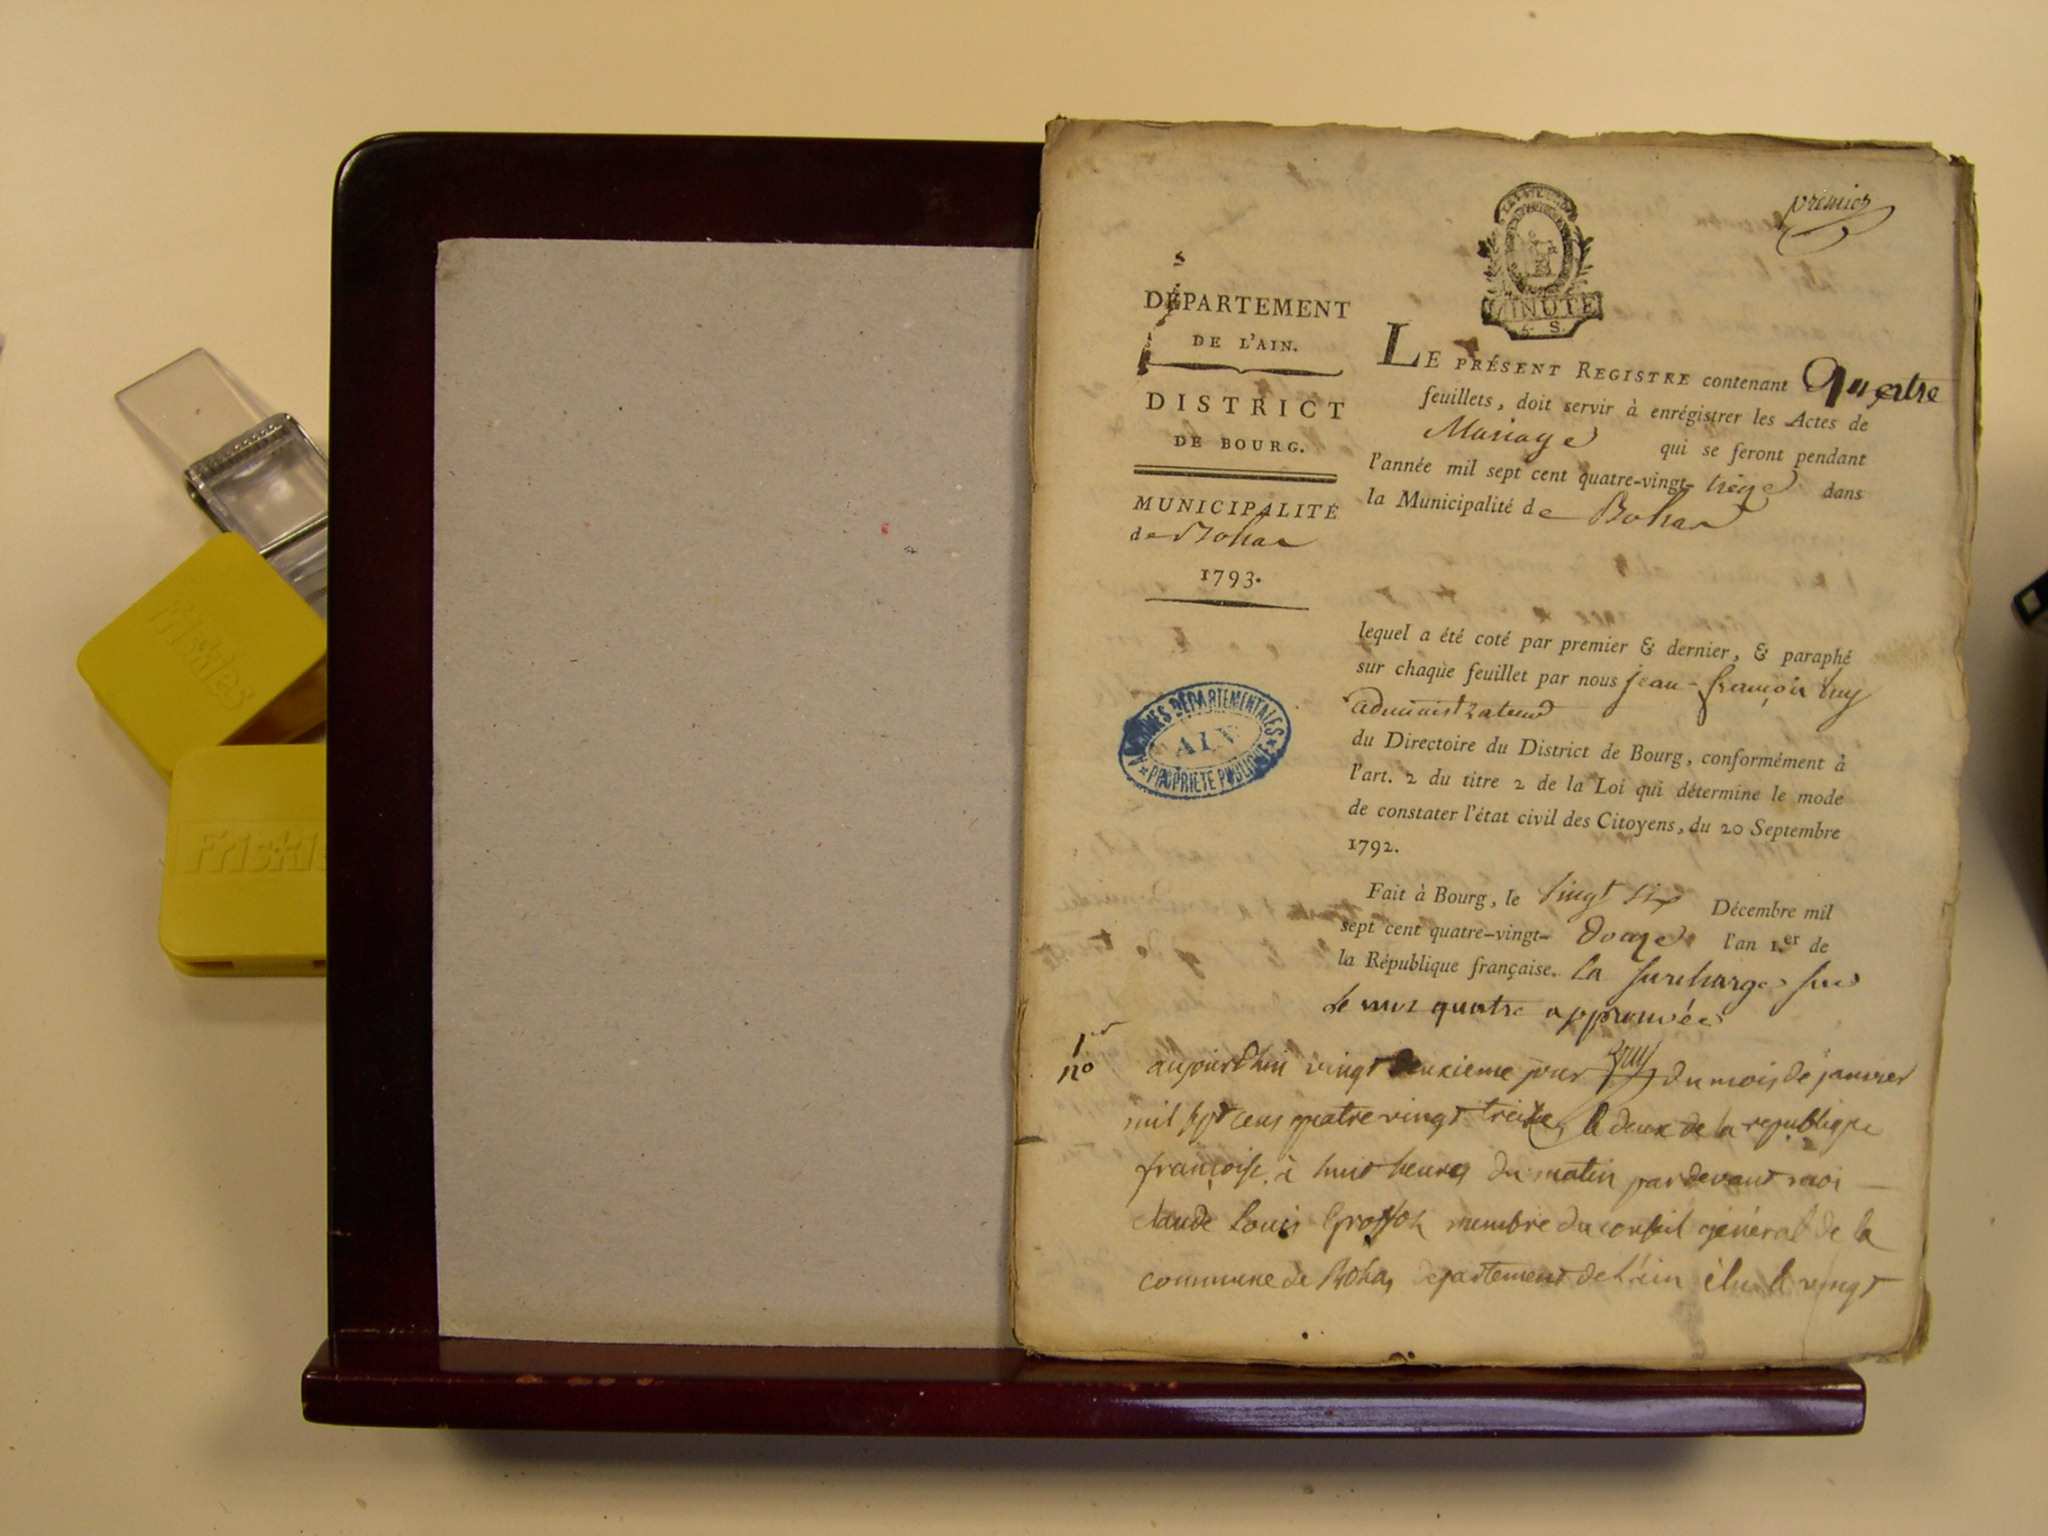 premier
MINUTE
4. S.
DÉPARTEMENT
DE L'AIN.
DISTRICT
DE BOURG.
MUNICIPALITÉ
de Bohas
1793.
LE PRÉSENT REGISTRE contenant Quatre
feuillets, doit servir à enrégistrer les Actes de
Mariage qui se feront pendant
l'année mil sept cent quatre-vingt- treize dans
la Municipalité de Bohas
lequel a été coté par premier & dernier, & paraphé
sur chaque feuillet par nous jean-françois
administrateur
du Directoire du District de Bourg, conformément à
l'art. 2 du titre 2 de la Loi qui détermine le mode
de constater l'état civil des Citoyens, du 20 Septembre
1792.
Fait à Bourg, le vingt six Décembre mil
sept cent quatre-vingt- douze l'an 1.er de
la République française. la surcharge sur
le mot quatre approuvée
ARCHIVES DÉPARTEMENTALES
AIN
PROPRIÉTÉ PUBLIQUE
1er
no
aujourdhui vingt deuxieme jour du mois de janvier
mil sept cens quatre vingt treize, le deux de la republique
françoise, à huit heures du matin pardevant moi
claude Louis membre du conseil général de la
commune de Bohas departement de l'ain élu le vingt
Friskies
Friskie